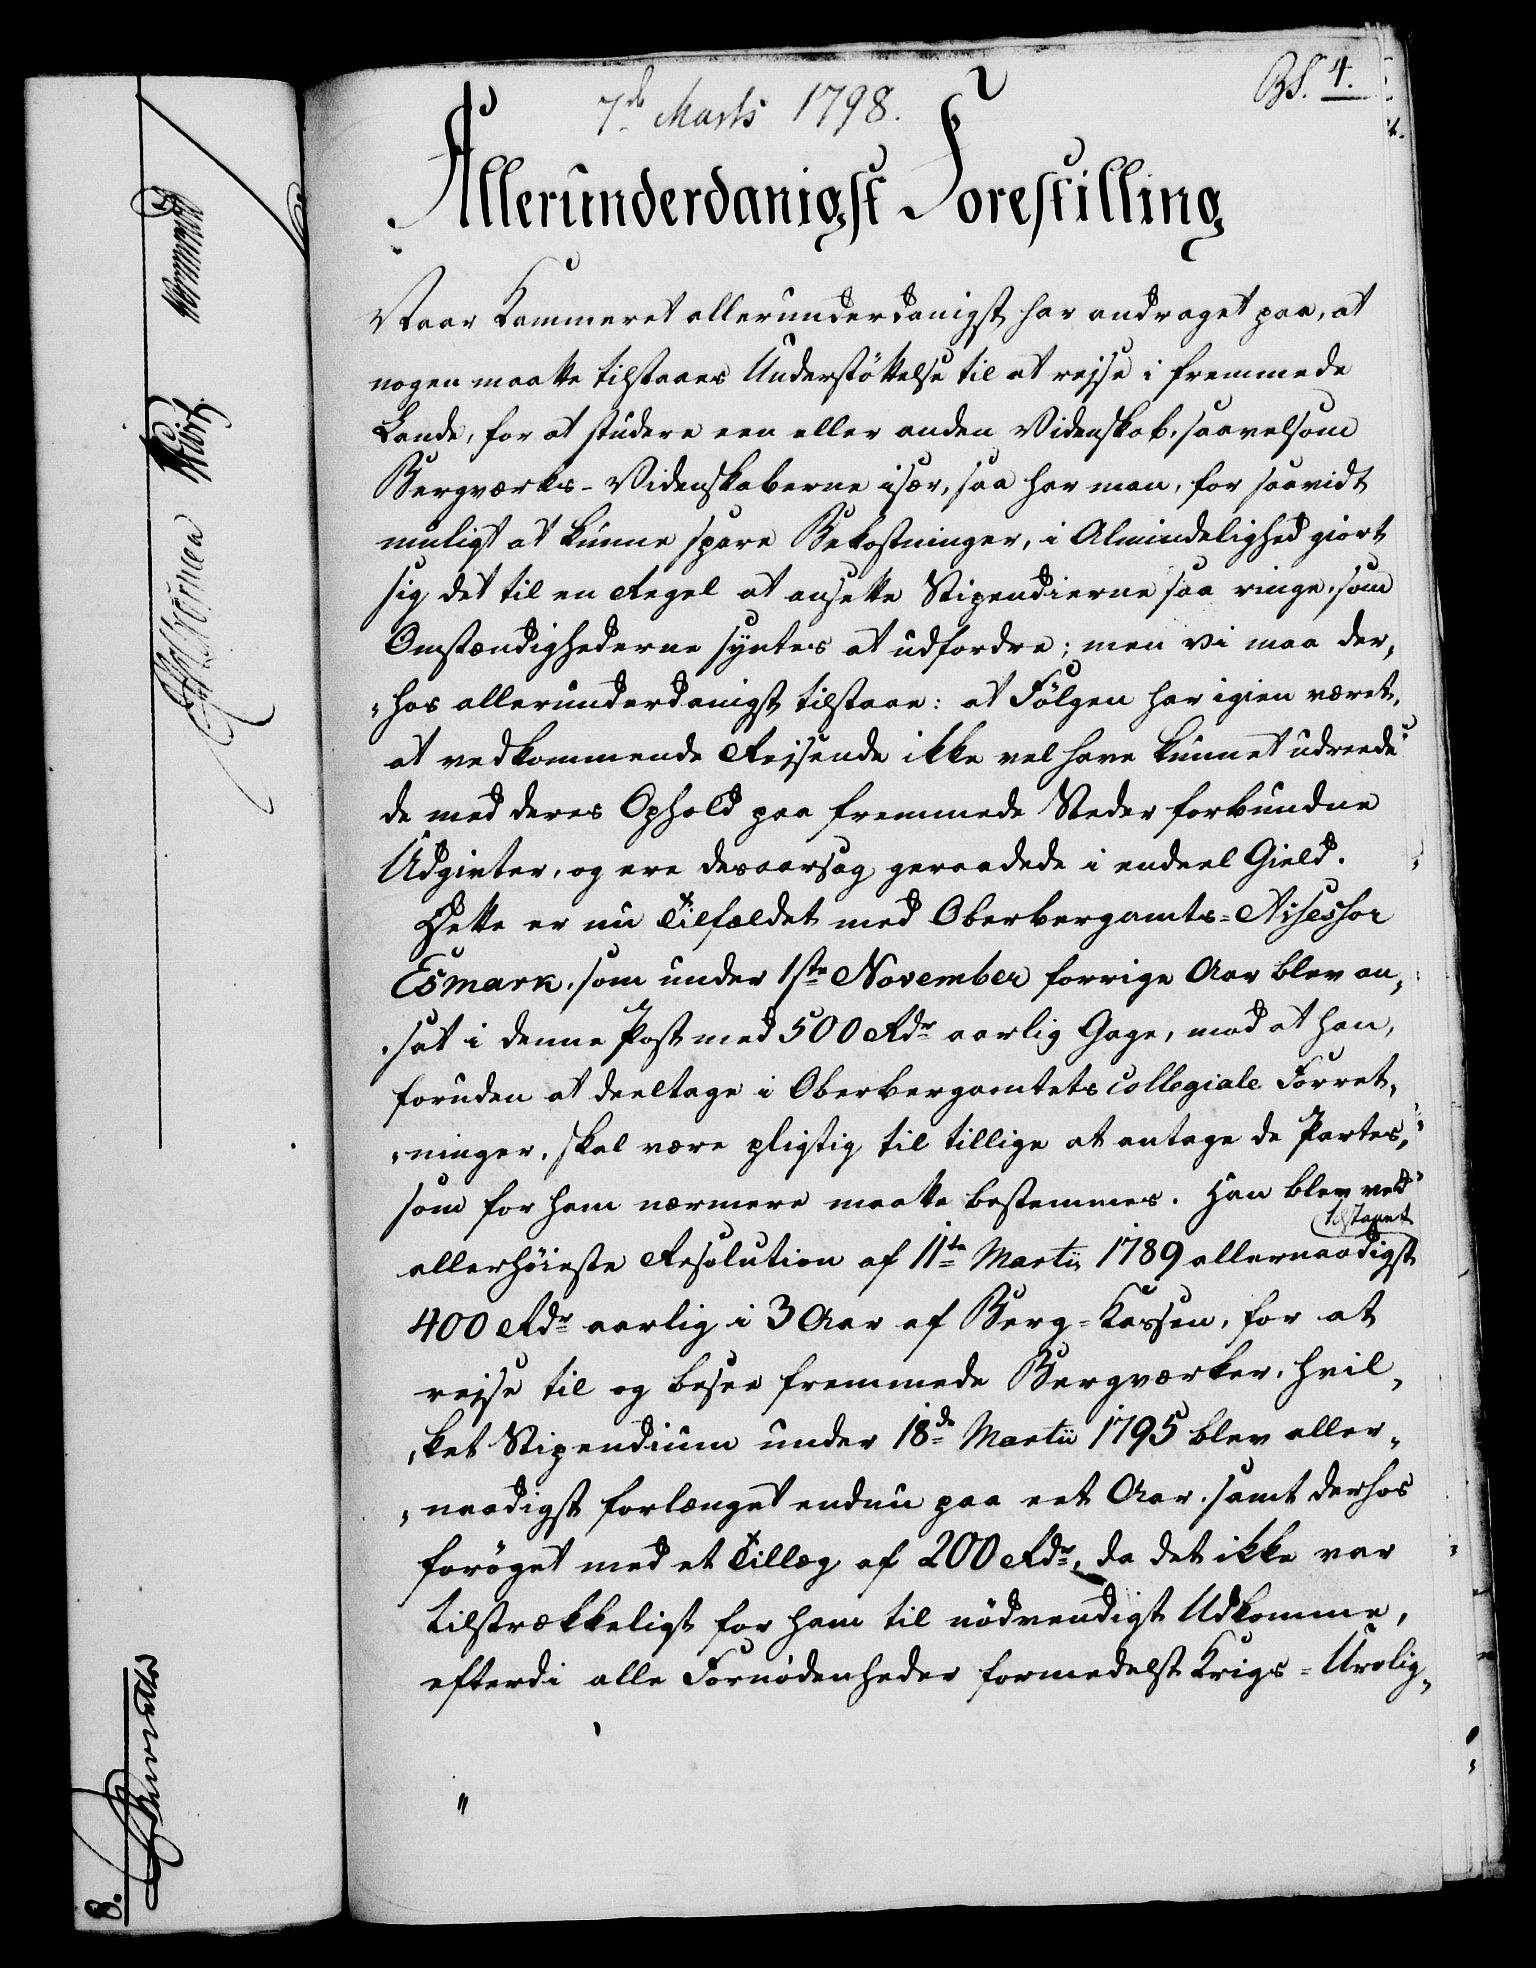 7de Marts 1798.
BS. 4.
Allerunderdanigst Forestilling
Naar Kammeret allerunderdanigst har andraget paa, at
nogen maatte tilstaaes Understöttelse til at rejse i fremmede
Lande, for at studere een eller anden Videnskab, saavelsom
Bergværks-Videnskaberne især, saa har man, for saavidt
muligt at kunne spare Bekostninger, i Almindelighed giort
sig det til en Regel at ansette Stipendierne saa ringe, som
Omstændighederne syntes at udfordre; men vi maa der„
„hos allerunderdanigst tilstaae: at Fölgen har igien været,
at vedkommende Rejsende ikke vel have kunnet udreede
de med deres Ophold paa fremmede Steder forbundne
Udgivter, og ere desaarsag geraadede i endeel Gield.
Dette er nu Tilfældet med Oberbergamts-Assessor
Esmark, som under 1ste November forrige Aar blev an„
„sat i denne Post med 500 Rdr aarlig Gage, mod at han,
foruden at deeltage i Oberbergamtets collegiale Forret„
„ninger, skal være pligtig til tillige at antage de Partes,
som for ham nærmere maatte bestemmes. Han blev ved
tilstaaet
allerhöieste Resolution af 11te Martii 1789 allernaadigst
400 Rdr aarlig i 3 Aar af Berg-Kassen, for at
rejse til og besee fremmede Bergværker, hvil„
„ket Stipendium under 18de Martii 1795 blev aller„
„naadigst forlænget endnu paa eet Aar, samt derhos
foröget med et Tillæg af 200 Rdr, da det ikke var
tilstrækkeligt for ham til nödvendigt Udkomme,
efterdi alle Fornödenheder formedelst Krigs-Urolig„
8.